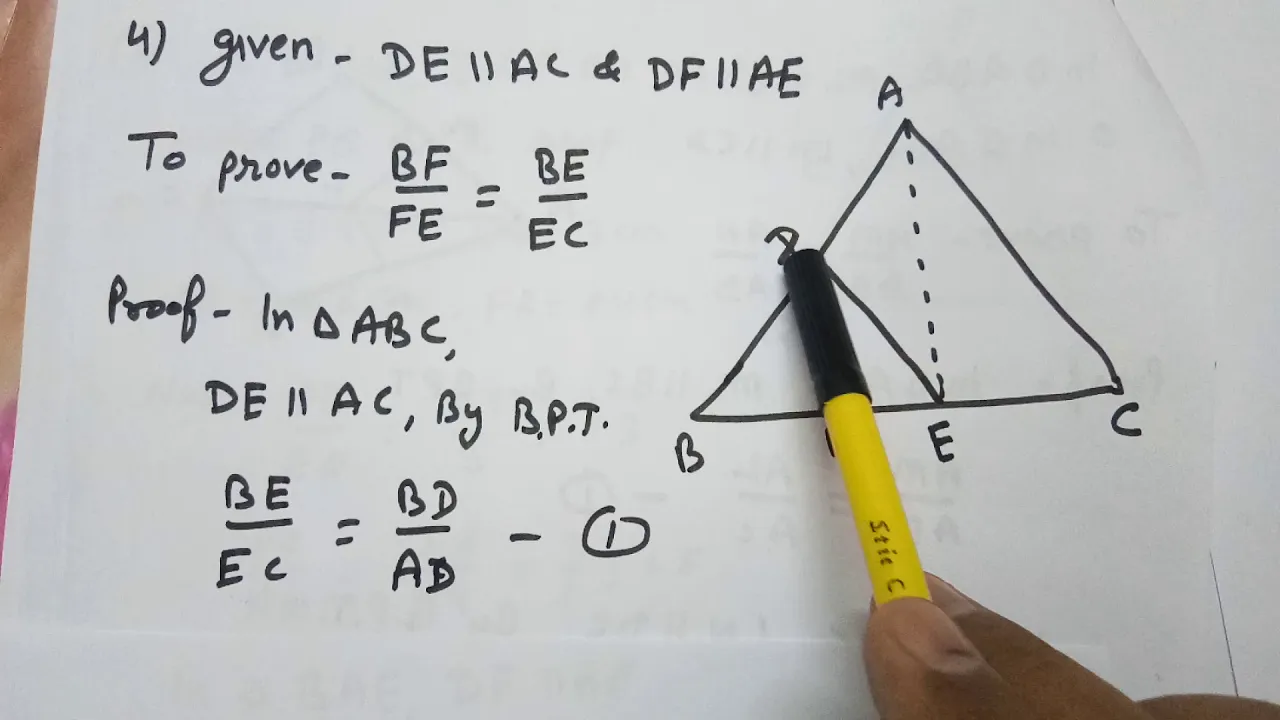 4) given - DE || AC & DF || AE
To prove - BF/FE = BE/EC
Proof - In △ABC,
DE || AC, By B.P.T.
BE/EC = BD/AD - ①
A
D
B
E
C
Stic C